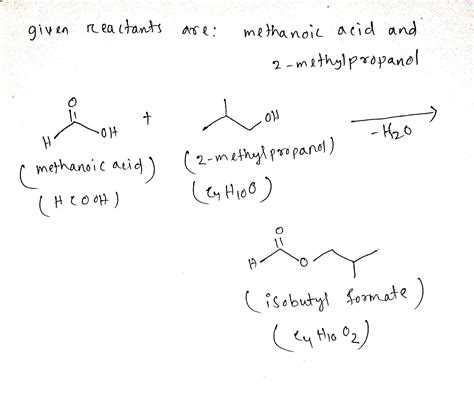 given reactants are: methanoic acid and
2-methylpropanol
O
H OH + OH
-H2O
(methanoic acid) (2-methylpropanol)
(HCOOH) (C4H10O)
O
H O
(isobutyl formate)
(C4H10O2)